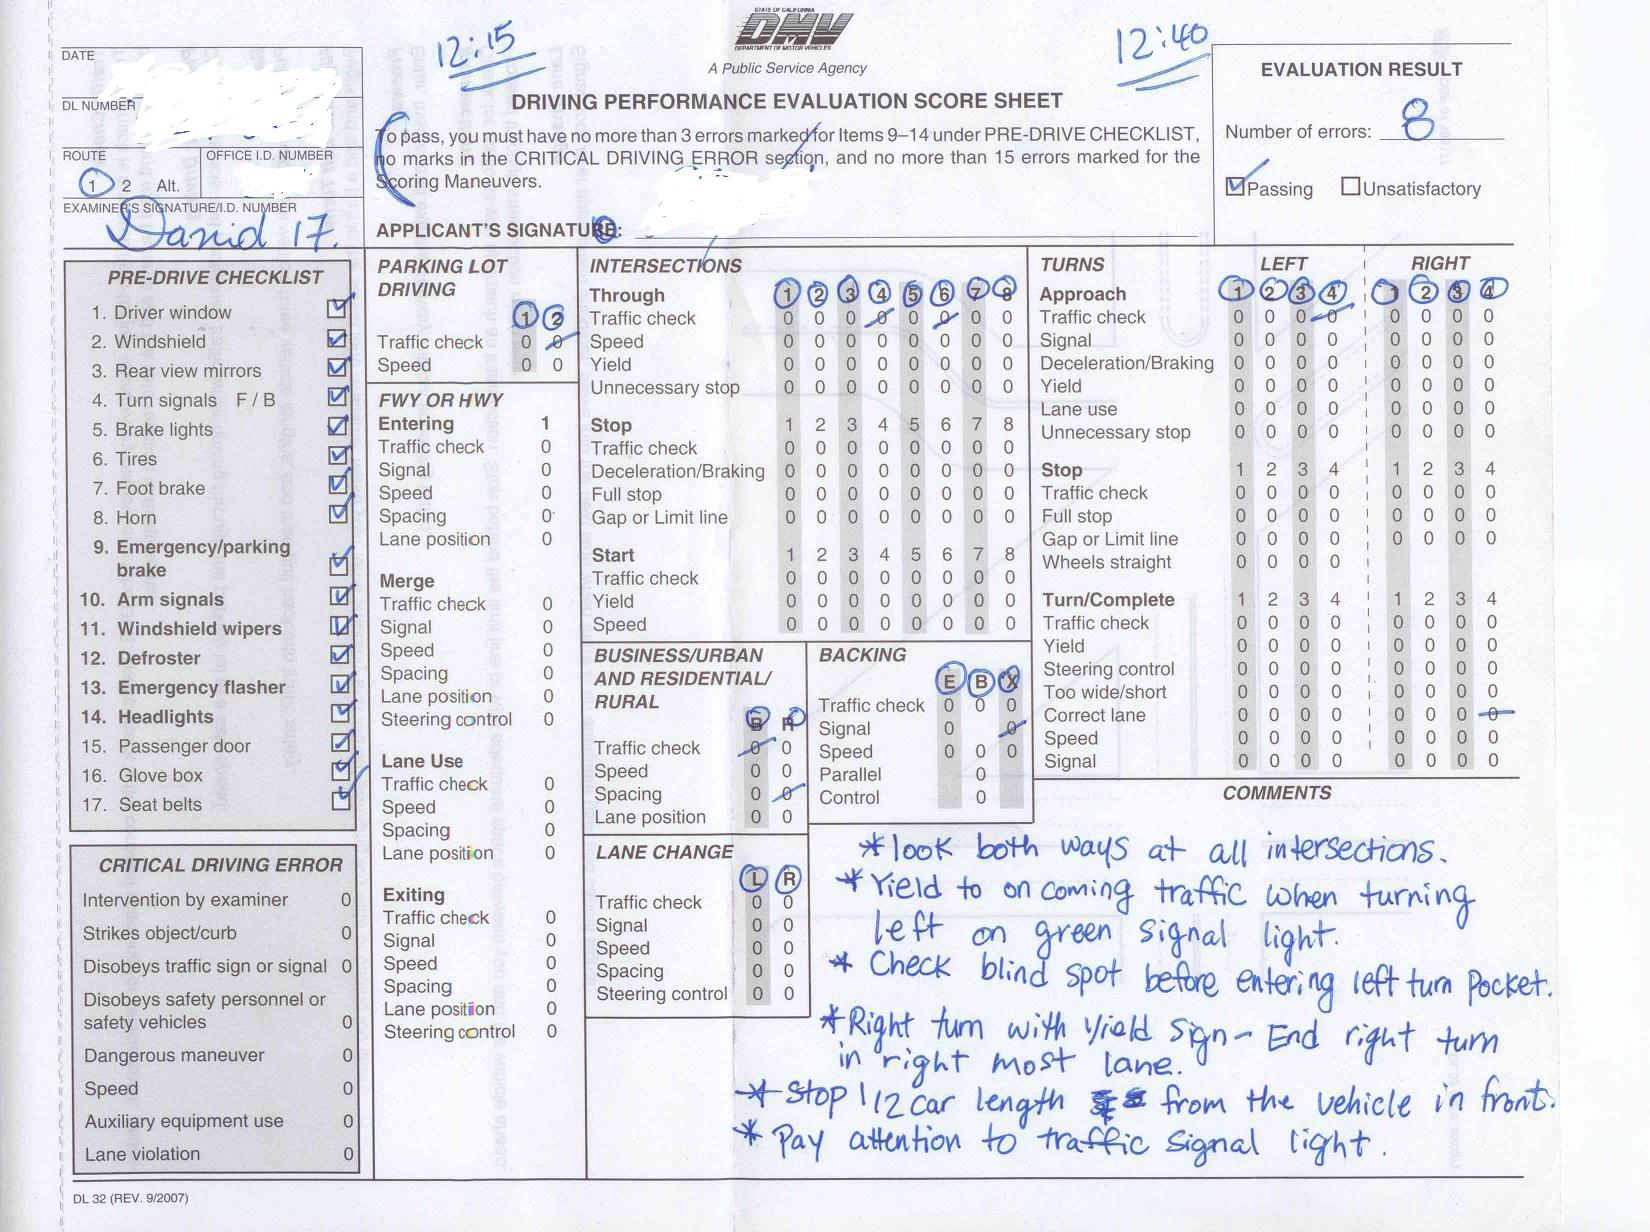 12:15
STATE OF CALIFORNIA
DMV
DEPARTMENT OF MOTOR VEHICLES
A Public Service Agency
12:40
DATE
DL NUMBER
ROUTE
1 2 Alt.
OFFICE I.D. NUMBER
EXAMINER'S SIGNATURE/I.D. NUMBER
David 17.
DRIVING PERFORMANCE EVALUATION SCORE SHEET
To pass, you must have no more than 3 errors marked for Items 9–14 under PRE-DRIVE CHECKLIST,
no marks in the CRITICAL DRIVING ERROR section, and no more than 15 errors marked for the
Scoring Maneuvers.
APPLICANT'S SIGNATURE:
EVALUATION RESULT
Number of errors: 8
Passing Unsatisfactory
PRE-DRIVE CHECKLIST
1. Driver window
2. Windshield
3. Rear view mirrors
4. Turn signals F / B
5. Brake lights
6. Tires
7. Foot brake
8. Horn
9. Emergency/parking
brake
10. Arm signals
11. Windshield wipers
12. Defroster
13. Emergency flasher
14. Headlights
15. Passenger door
16. Glove box
17. Seat belts
CRITICAL DRIVING ERROR
Intervention by examiner 0
Strikes object/curb 0
Disobeys traffic sign or signal 0
Disobeys safety personnel or
safety vehicles 0
Dangerous maneuver 0
Speed 0
Auxiliary equipment use 0
Lane violation 0
DL 32 (REV. 9/2007)
PARKING LOT
DRIVING
1 2
Traffic check 0 0
Speed 0 0
FWY OR HWY
Entering 1
Traffic check 0
Signal 0
Speed 0
Spacing 0
Lane position 0
Merge
Traffic check 0
Signal 0
Speed 0
Spacing 0
Lane position 0
Steering control 0
Lane Use
Traffic check 0
Speed 0
Spacing 0
Lane position 0
Exiting
Traffic check 0
Signal 0
Speed 0
Spacing 0
Lane position 0
Steering control 0
INTERSECTIONS
Through 1 2 3 4 5 6 7 8
Traffic check 0 0 0 0 0 0 0 0
Speed 0 0 0 0 0 0 0 0
Yield 0 0 0 0 0 0 0 0
Unnecessary stop 0 0 0 0 0 0 0 0
Stop 1 2 3 4 5 6 7 8
Traffic check 0 0 0 0 0 0 0 0
Deceleration/Braking 0 0 0 0 0 0 0 0
Full stop 0 0 0 0 0 0 0 0
Gap or Limit line 0 0 0 0 0 0 0 0
Start 1 2 3 4 5 6 7 8
Traffic check 0 0 0 0 0 0 0 0
Yield 0 0 0 0 0 0 0 0
Speed 0 0 0 0 0 0 0 0
BUSINESS/URBAN
AND RESIDENTIAL/
RURAL
B R
Traffic check 0 0
Speed 0 0
Spacing 0 0
Lane position 0 0
LANE CHANGE
L R
Traffic check 0 0
Signal 0 0
Speed 0 0
Spacing 0 0
Steering control 0 0
BACKING
E B X
Traffic check 0 0 0
Signal 0 0
Speed 0 0 0
Parallel 0
Control 0
TURNS LEFT RIGHT
Approach 1 2 3 4 1 2 3 4
Traffic check 0 0 0 0 0 0 0 0
Signal 0 0 0 0 0 0 0 0
Deceleration/Braking 0 0 0 0 0 0 0 0
Yield 0 0 0 0 0 0 0 0
Lane use 0 0 0 0 0 0 0 0
Unnecessary stop 0 0 0 0 0 0 0 0
Stop 1 2 3 4 1 2 3 4
Traffic check 0 0 0 0 0 0 0 0
Full stop 0 0 0 0 0 0 0 0
Gap or Limit line 0 0 0 0 0 0 0 0
Wheels straight 0 0 0 0
Turn/Complete 1 2 3 4 1 2 3 4
Traffic check 0 0 0 0 0 0 0 0
Yield 0 0 0 0 0 0 0 0
Steering control 0 0 0 0 0 0 0 0
Too wide/short 0 0 0 0 0 0 0 0
Correct lane 0 0 0 0 0 0 0 0
Speed 0 0 0 0 0 0 0 0
Signal 0 0 0 0 0 0 0 0
COMMENTS
* look both ways at all intersections.
* Yield to on coming traffic when turning
left on green signal light.
* Check blind spot before entering left turn pocket.
* Right turn with yield sign - End right turn
in right most lane.
* Stop 1/2 car length from the vehicle in front.
* Pay attention to traffic signal light.